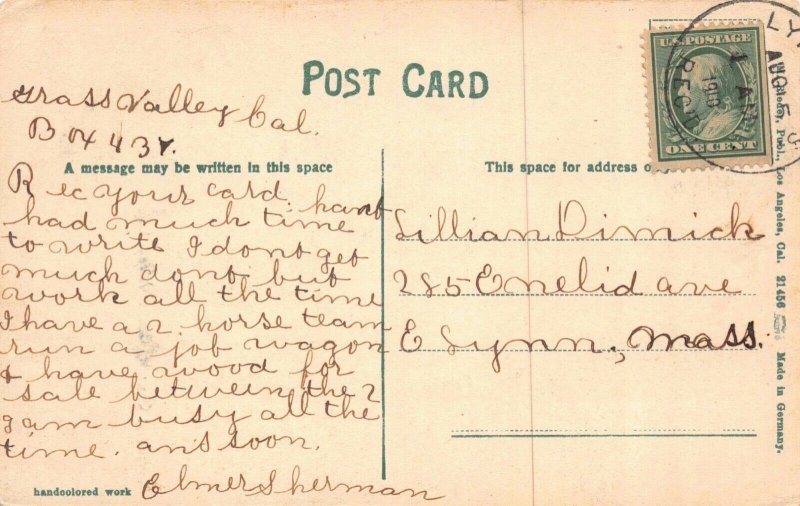 POST CARD
Grass Valley Cal.
Box 437.
A message may be written in this space
Rec your card. hant
had much time
to write I dont get
much dont but
work all the time
I have a 2 horse team
run a job wagon
& have wood for
sale between the 2
I am busy all the
time. ans soon.
Elmer Sherman
handcolored work
This space for address
Lillian Dimick
285 Enelid ave
E Lynn, Mass.
U.S. POSTAGE
ONE CENT
LY
AUG 5
1 AM
1910
REC'D
Publ., Los Angeles, Cal. 21456 Made in Germany.